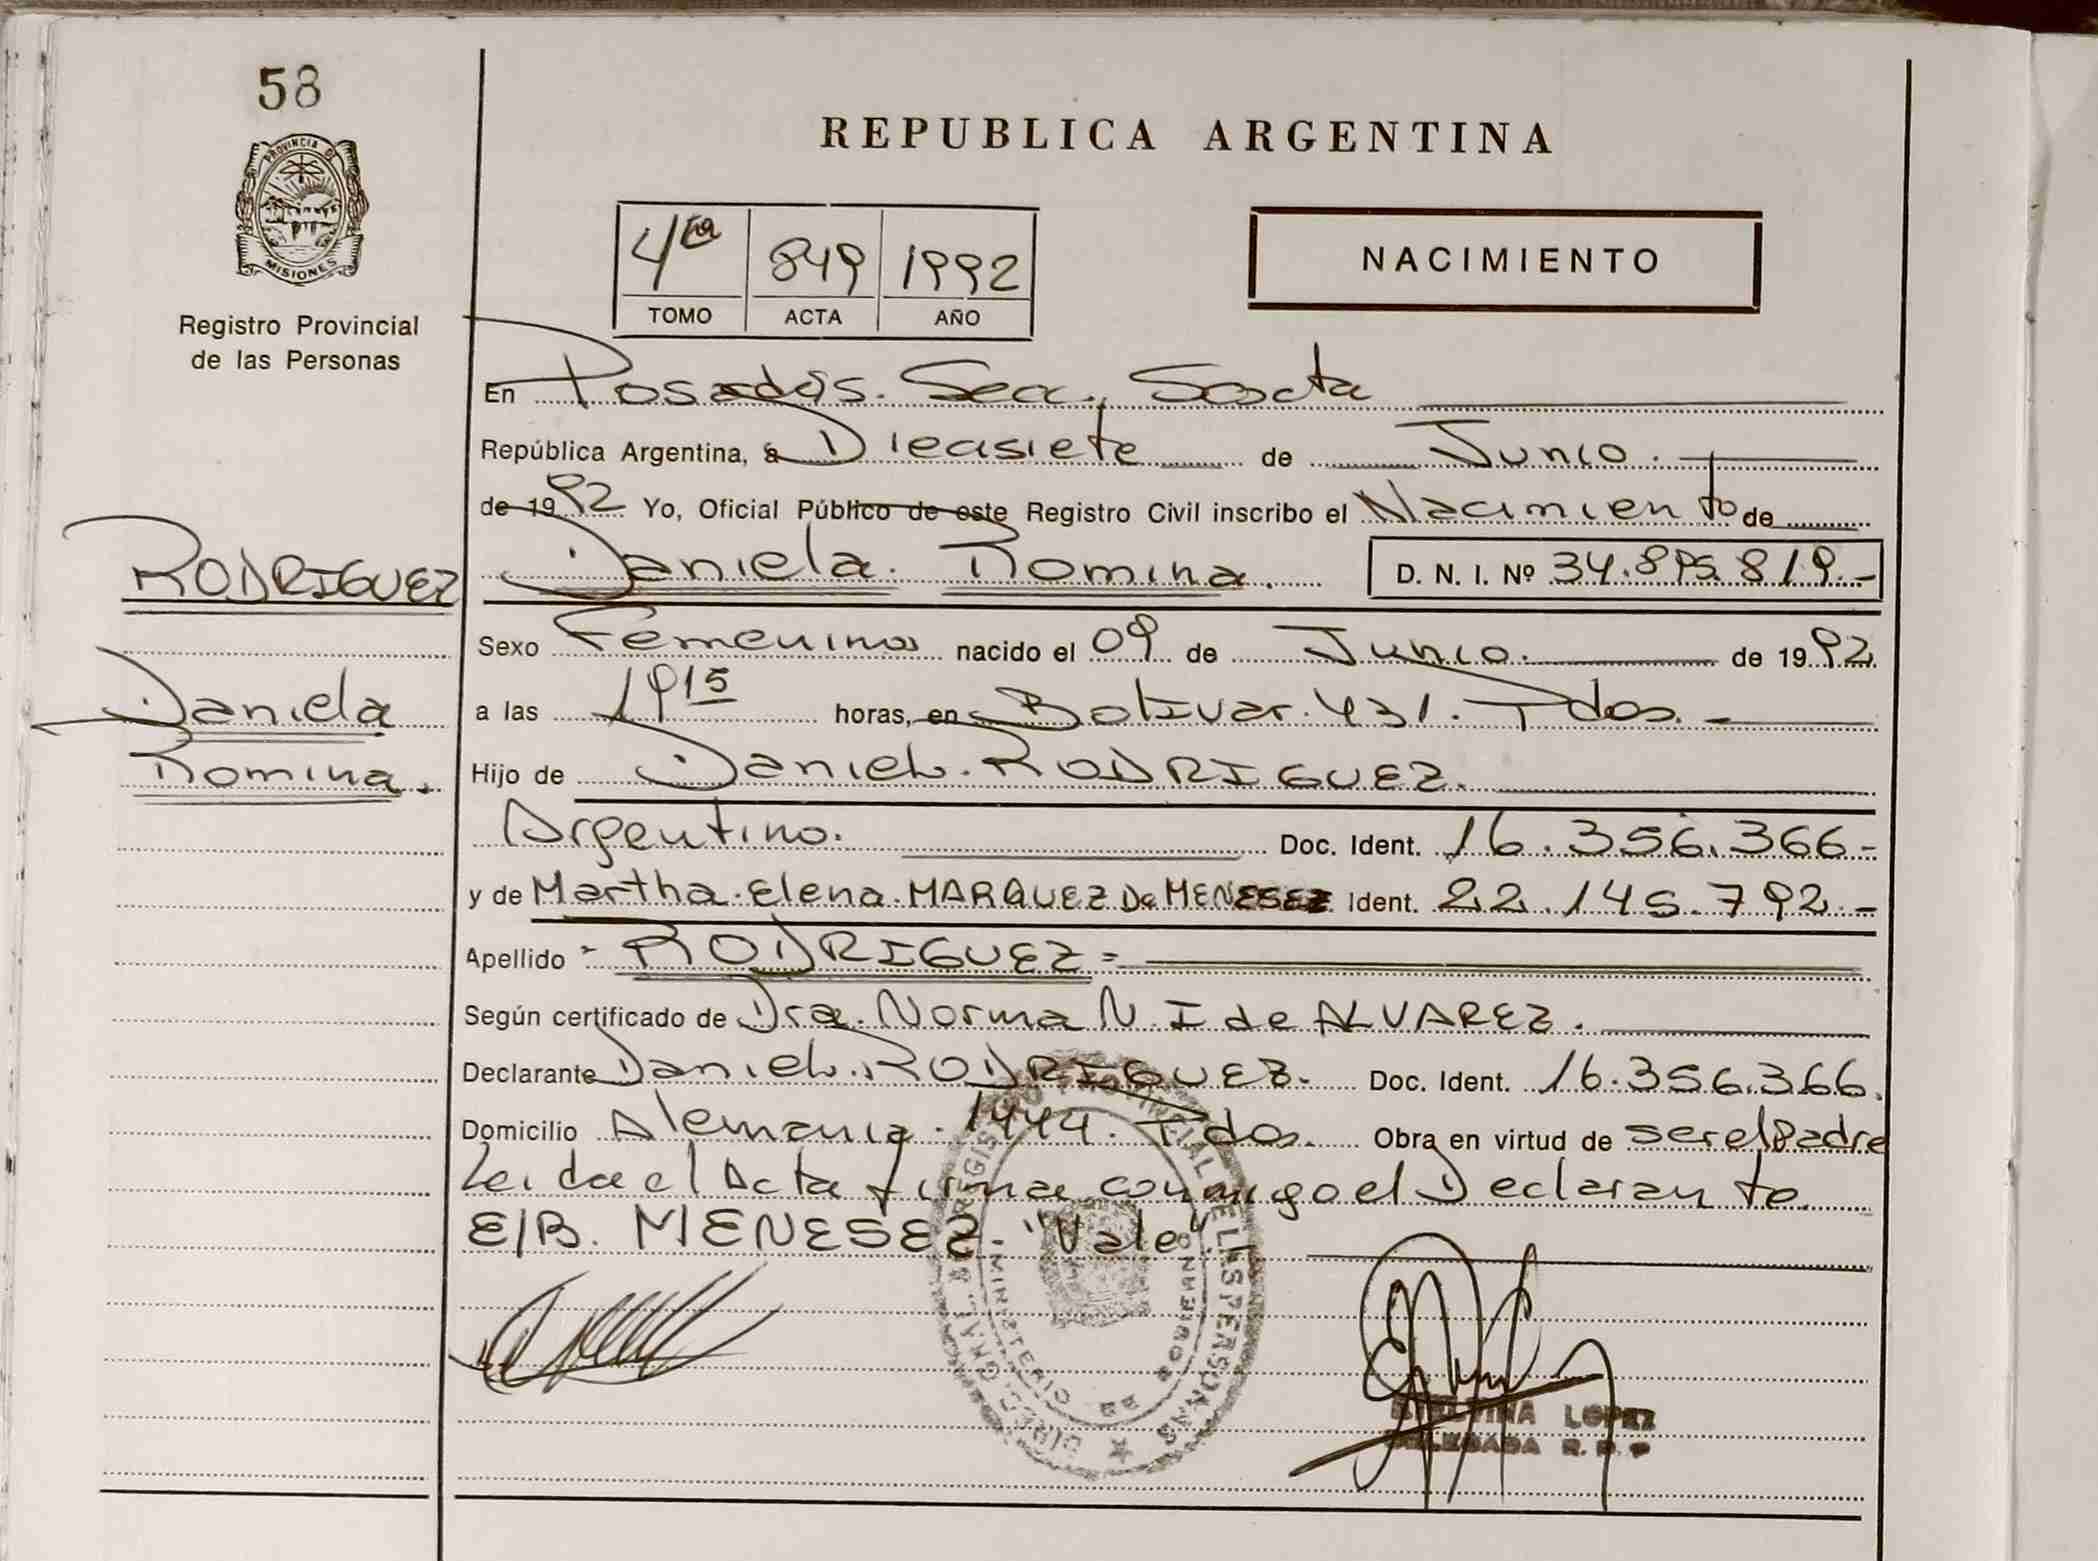 58
PROVINCIA D
MISIONES
Registro Provincial
de las Personas
REPUBLICA ARGENTINA
4ta 849 1992
TOMO ACTA AÑO
NACIMIENTO
En Posadas. Sec. Sexta
República Argentina, a Diecisiete de Junio.
de 1992 Yo, Oficial Público de este Registro Civil inscribo el Nacimiento de
RODRIGUEZ
Daniela
Romina.
Daniela. Romina. D. N. I. Nº 34.895.819.-
Sexo Femenino nacido el 09 de Junio. de 1992
a las 1915 horas, en Bolivar. 431. Pdas. -
Hijo de Daniel. RODRIGUEZ.
Argentino. Doc. Ident. 16.356.366-
y de Martha. Elena. MARQUEZ De MENESEZ Ident. 22.145.792.-
Apellido = RODRIGUEZ =
Según certificado de Dra. Norma N. I de ALVAREZ.
Declarante Daniel. RODRIGUEZ. Doc. Ident. 16.356.366.
Domicilio Alemania. 1444. Pdas. Obra en virtud de ser el Padre
Leida el Acta firma conmigo el Declarante
E/B. MENESEZ. "Vale".
DIREC. GRAL. DE REGISTRO PROVINCIAL DE LAS PERSONAS
MINISTERIO DE GOBIERNO
LOPEZ
DELEGADA R. P. P